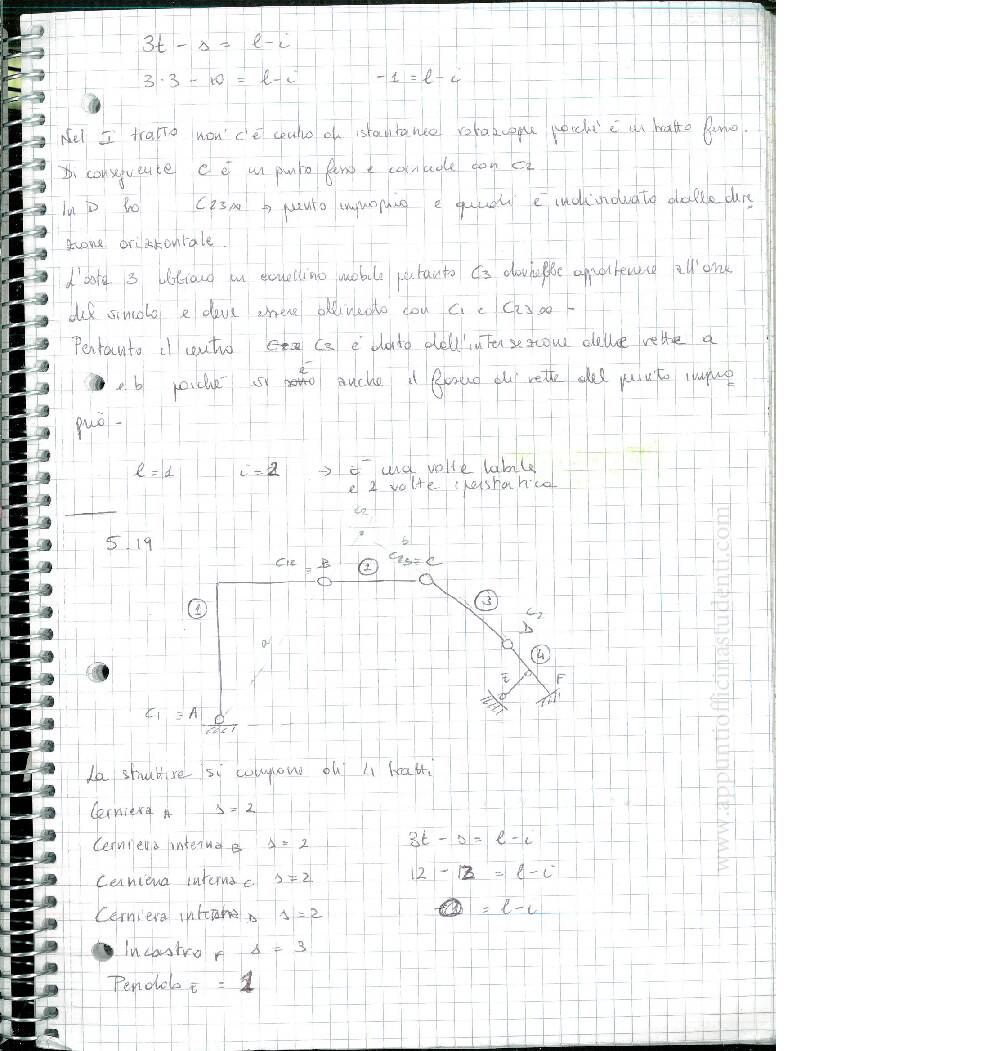 3t - s = l - i
3·3 - 10 = l - i -1 = l - i
Nel I tratto non c'è centro di istantanea rotazione poiché è un tratto fermo.
Di conseguente C è un punto fermo e coincide con C2
In D ho C23∞ → punto improprio e quindi è individuato dalla dire
zione orizzontale.
L'asta 3 abbiamo un carrellino mobile pertanto C3 dovrebbe appartenere all'asse
del vincolo e deve essere allineato con C1 e C23∞ -
Pertanto il centro C3 è dato dell'intersezione delle rette a
e b poiché vi è anche il fascio di rette del punto impro
prio -
l = 1 i = 2 → È una volta labile
e 2 volte iperstatica
5.19
C2
b
C12 ≡ B
2
C23 ≡ C
1
3
C2
D
4
a
E
F
C1 ≡ A
La struttura si compone di 4 tratti
Cerniera A s = 2
Cerniera interna B s = 2 3t - s = l - i
Cerniera interna C s = 2 12 - 12 = l - i
Cerniera interna D s = 2 = l - i
Incastro F s = 3
Pendolo E = 1
www.appuntiofficinastudenti.com